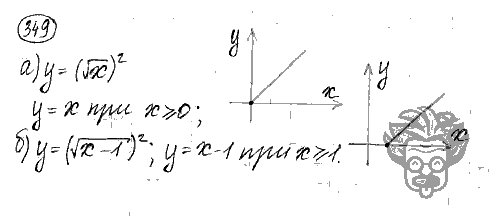 349
а) y = (√x)²
y = x при x ≥ 0;
б) y = (√x-1)²; y = x-1 при x ≥ 1.
y
x
y
x